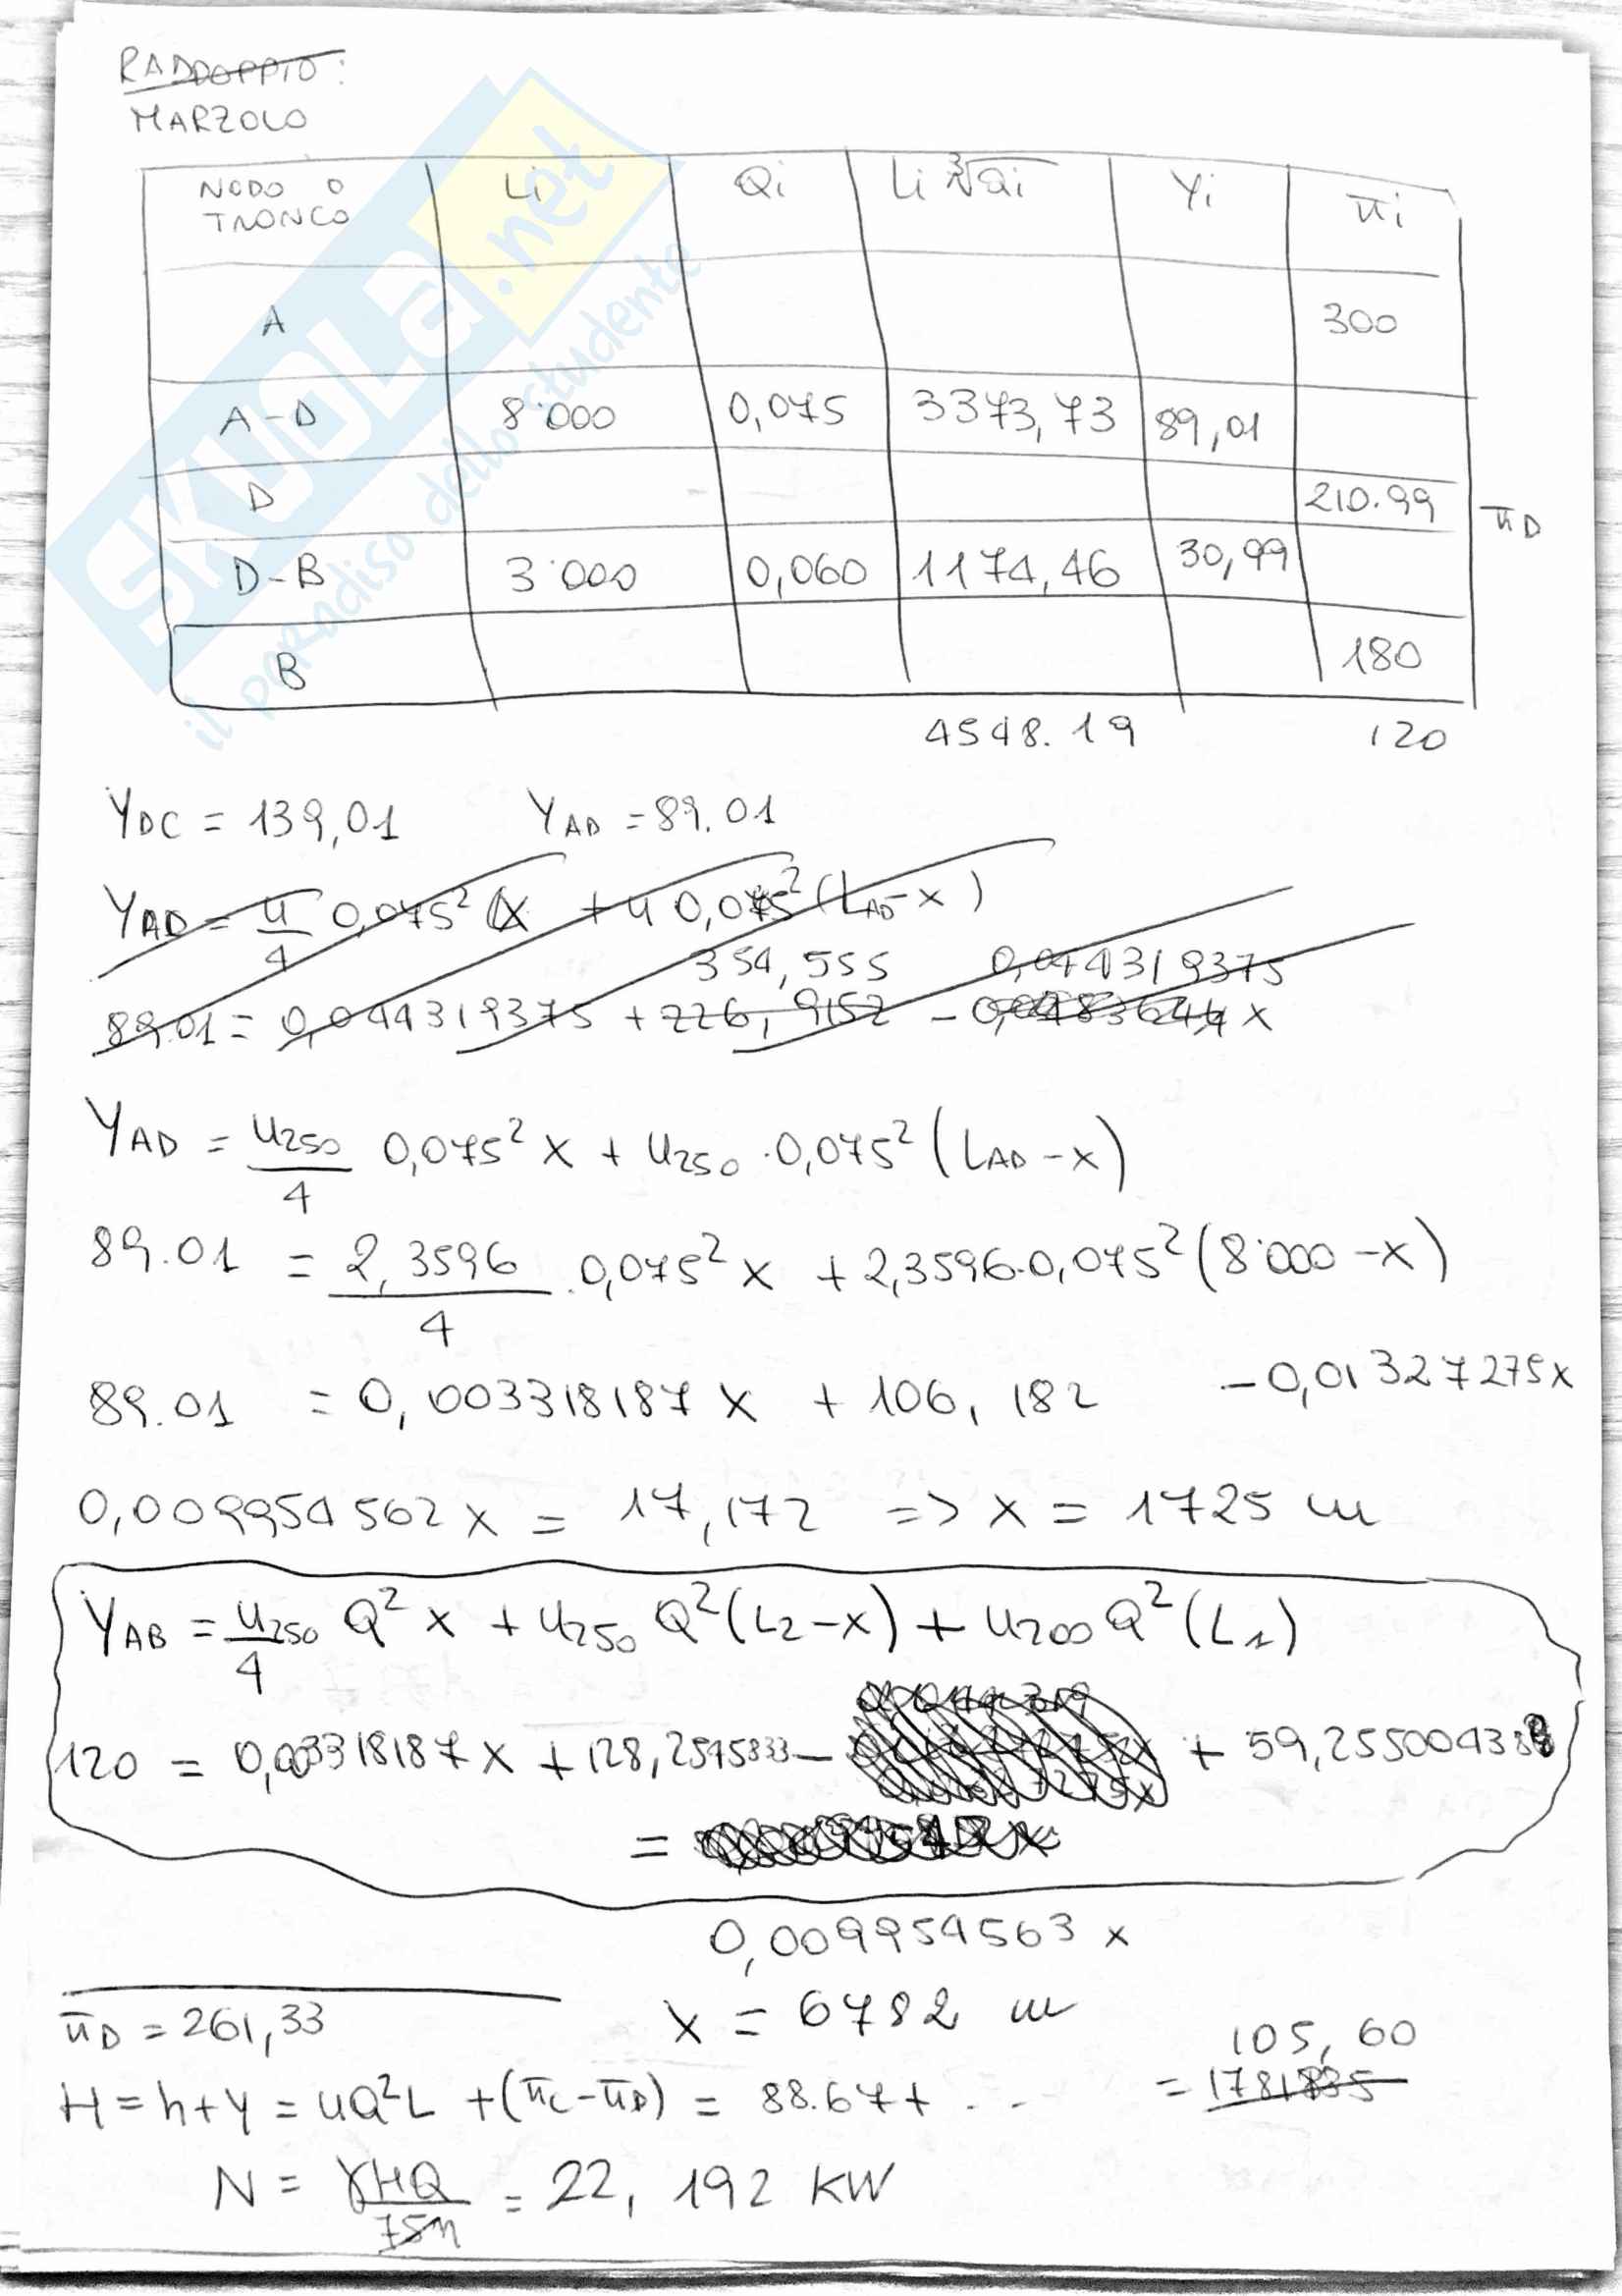 RADDOPPIO:
MARZOLO
NODO O TRONCO Li Qi Li ∛Qi Yi πi
A 300
A-D 8'000 0,075 3373,73 89,01
D 210.99 πD
D-B 3'000 0,060 1174,46 30,99
B 180
4548.19 120
YDC = 139,01 YAD = 89.01
YAD = u/4 0,075² x + u 0,075² (LAD-x)
354,555 0,044319375
89.01 = 0,044319375 + 226,9152 - x
YAD = u250/4 0,075² x + u250 · 0,075² (LAD - x)
89.01 = 2,3596/4 · 0,075² x + 2,3596·0,075² (8'000 - x)
89.01 = 0,003318187 x + 106,182 - 0,01327275x
0,009954562 x = 17,172 => x = 1725 m
YAB = u250/4 Q² x + u250 Q² (L2-x) + u200 Q² (L1)
120 = 0,003318187 x + 128,2545833 - + 59,25500433
=
0,009954563 x
πD = 261,33 x = 6782 m
105,60
H = h+y = uQ²L + (πc-πD) = 88.67+ ... = 1781835
N = γHQ/75η = 22,192 KW
SKUOLA.net
il paradiso dello studente